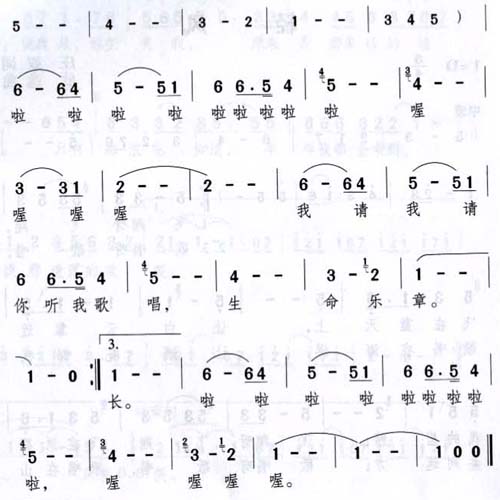 5 - - | 4 - - | 3 - 2 | 1 - - | 3 4 5 )
6 - 64 | 5 - 51 | 6 6·5 4 | 5 - - | 4 - -
啦 啦 啦 啦 啦 啦啦 啦 啦 喔
3 - 31 | 2 - - | 2 - - | 6 - 64 | 5 - 51
喔 喔 喔 我 请 我 请
6 6·5 4 | 5 - - | 4 - - | 3 - 2 | 1 - -
你 听我 歌 唱, 生 命 乐 章。
1 - 0 :‖ 3. 1 - - | 6 - 64 | 5 - 51 | 6 6·5 4
长。 啦 啦 啦 啦 啦 啦啦 啦
5 - - | 4 - - | 3 - 2 | 1 - - | 1 - - | 1 0 0 ‖
啦, 喔 喔 喔 喔。